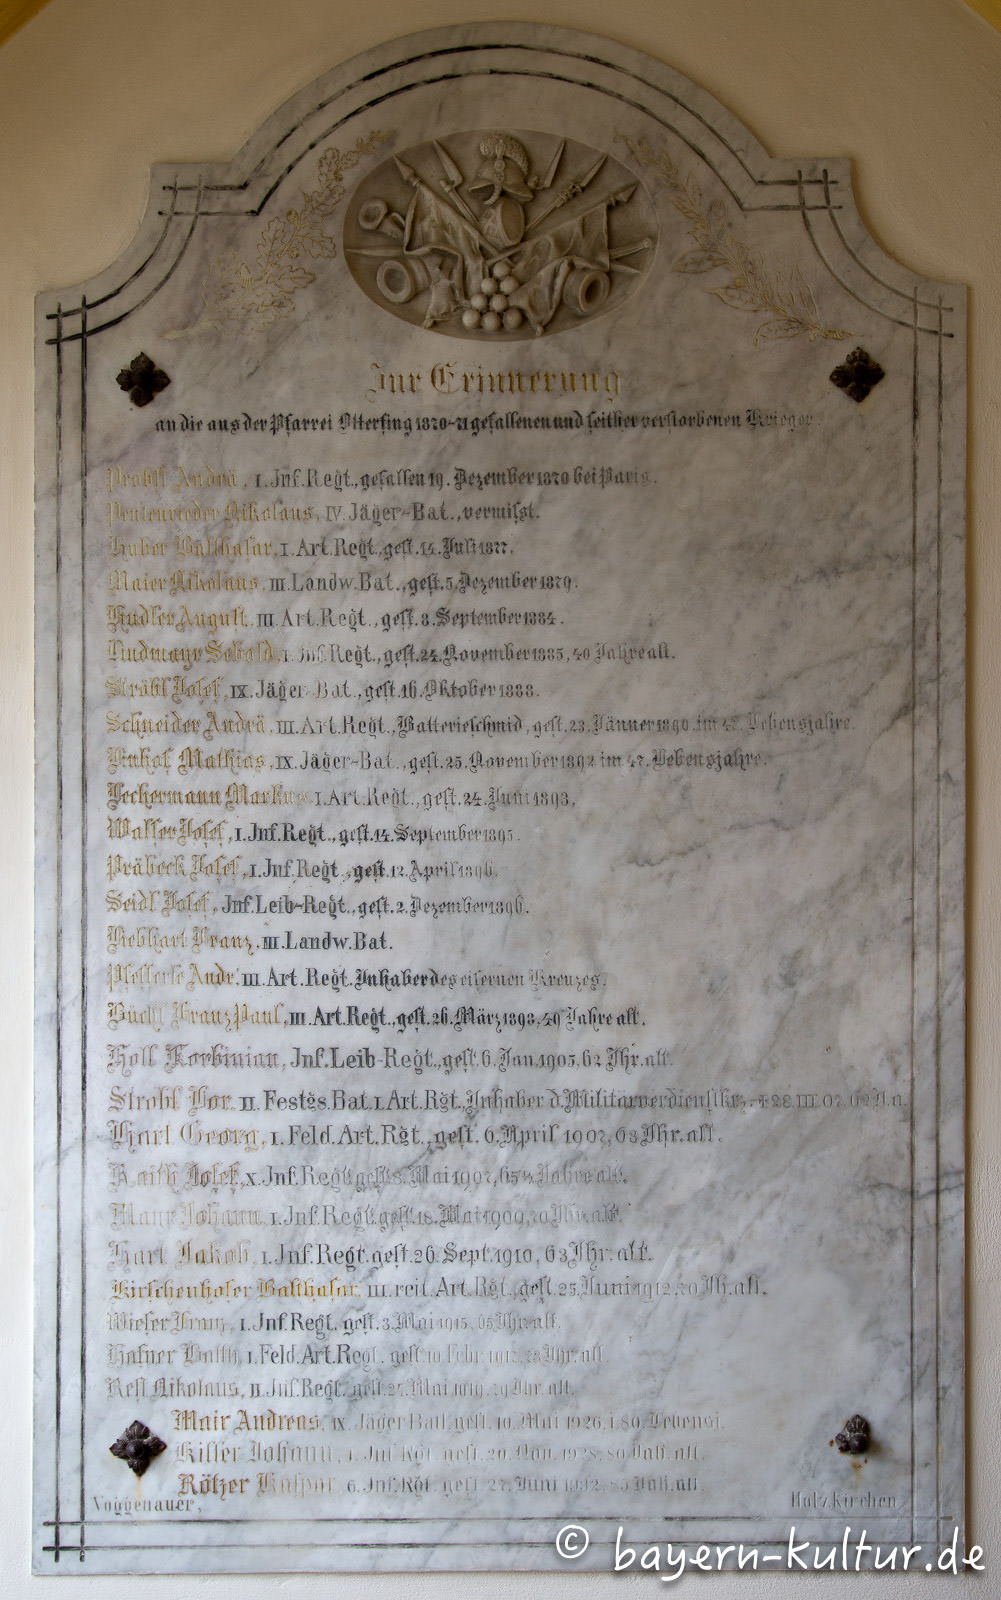 Zur Erinnerung
an die aus der Pfarrei Otterfing 1870-71 gefallenen und seither verstorbenen Krieger.
Probst Andrä, I. Inf. Regt., gefallen 19. Dezember 1870 bei Paris.
Pentenrieder Nikolaus, IV. Jäger-Bat., vermisst.
Huber Balthasar, I. Art. Regt., gest. 14. Juli 1877.
Maier Nikolaus, III. Landw. Bat., gest. 5. Dezember 1879.
August, III. Art. Regt., gest. 8. September 1884.
Lindmayr Sebald, I. Inf. Regt., gest. 24. November 1885, 40 Jahre alt.
Ströbl Josef, IX. Jäger-Bat., gest. 16. Oktober 1888.
Schneider Andrä, III. Art. Regt., Batterieschmid, gest. 23. Jänner 1890 im Lebensjahre.
Mathias, IX. Jäger-Bat., gest. 25. November 1892 im 47. Lebensjahre.
Lechermann Markus, I. Art. Regt., gest. 24. Juni 1893.
Walser Josef, I. Inf. Regt., gest. 14. September 1895.
Präbeck Josef, I. Inf. Regt., gest. 12. April 1896.
Seidl Josef, Inf. Leib-Regt., gest. 2. Dezember 1896.
Liebhart Franz, III. Landw. Bat.
Pfefferle Andr. III. Art. Regt. Inhaber des eisernen Kreuzes.
Büchl Franz Paul, III. Art. Regt., gest. 26. März 1898, 49 Jahre alt.
Holl Korbinian, Inf. Leib-Regt., gest. 6. Jan. 1905, 62 Jhr. alt.
Strobl Lor. II. Festgs. Bat. I. Art. Rgt., Inhaber d. Militärverdienstkrz. + 28. III. 07. 62 J. a.
Hart Georg, I. Feld. Art. Rgt., gest. 6. April 1907, 63 Jhr. alt.
Raith Josef, X. Inf. Regt. gest. 8. Mai 1907, Jahre alt.
Johann, I. Inf. Regt. gest. 18. Mai 1909, 70 Jhr. alt.
Hart Jakob, I. Inf. Regt. gest. 26. Sept. 1910, 63 Jhr. alt.
Kirschenhofer Balthasar, III. reit. Art. Rgt., gest. 25. Juni 1912, 70 Jh. alt.
Wieser Franz, I. Inf. Regt. gest. 3. Mai 1915, Jhr. alt.
Hafner Balth. I. Feld. Art. Regt. gest. 10. Febr. Jhr. alt.
Nikolaus, II. Inf. Regt. gest. Mai 1919, Jhr. alt.
Mair Andreas, IX. Jäger Batl. gest. 10. Mai 1926, i. 80. Lebensj.
Killer Johann, 1. Inf. Rgt. gest. 20. Nov. 1928, 80 Jah. alt.
Rötzer Kaspar, 6. Inf. Rgt. gest. 27. Juni 1932, 85 Jah. alt.
Voggenauer, Holzkirchen
© bayern-kultur.de